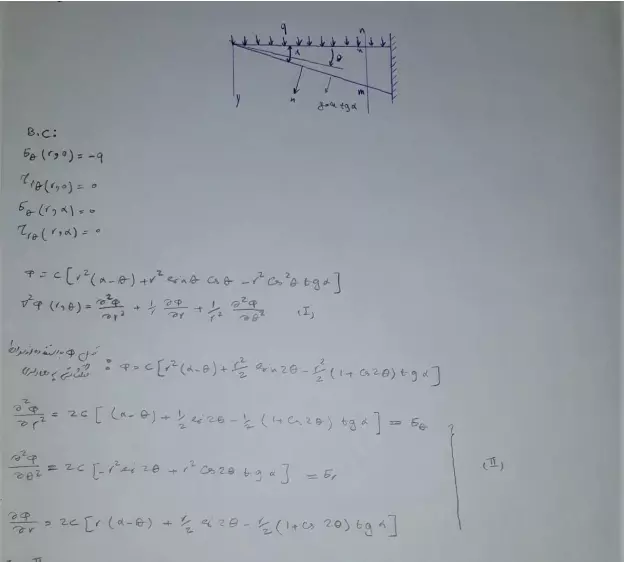 q
n
x
θ
y
n
y=x tgα
m
B.C:
σθ(r,0) = -q
τrθ(r,0) = 0
σθ(r,α) = 0
τrθ(r,α) = 0
Φ = C[r²(α-θ) + r² sinθ Cosθ - r² Cos²θ tgα]
∇²Φ(r,θ) = ∂²Φ/∂r² + 1/r ∂Φ/∂r + 1/r² ∂²Φ/∂θ² (I)
: Φ = C[r²(α-θ) + r²/2 sin2θ - r²/2 (1+Cos2θ) tgα]
∂²Φ/∂r² = 2C[(α-θ) + 1/2 sin2θ - 1/2 (1+Cos2θ) tgα] = σθ
∂²Φ/∂θ² = 2C[-r² sin2θ + r² Cos2θ tgα] = σr
(II)
∂Φ/∂r = 2C[r(α-θ) + r/2 sin2θ - r/2 (1+Cos2θ) tgα]